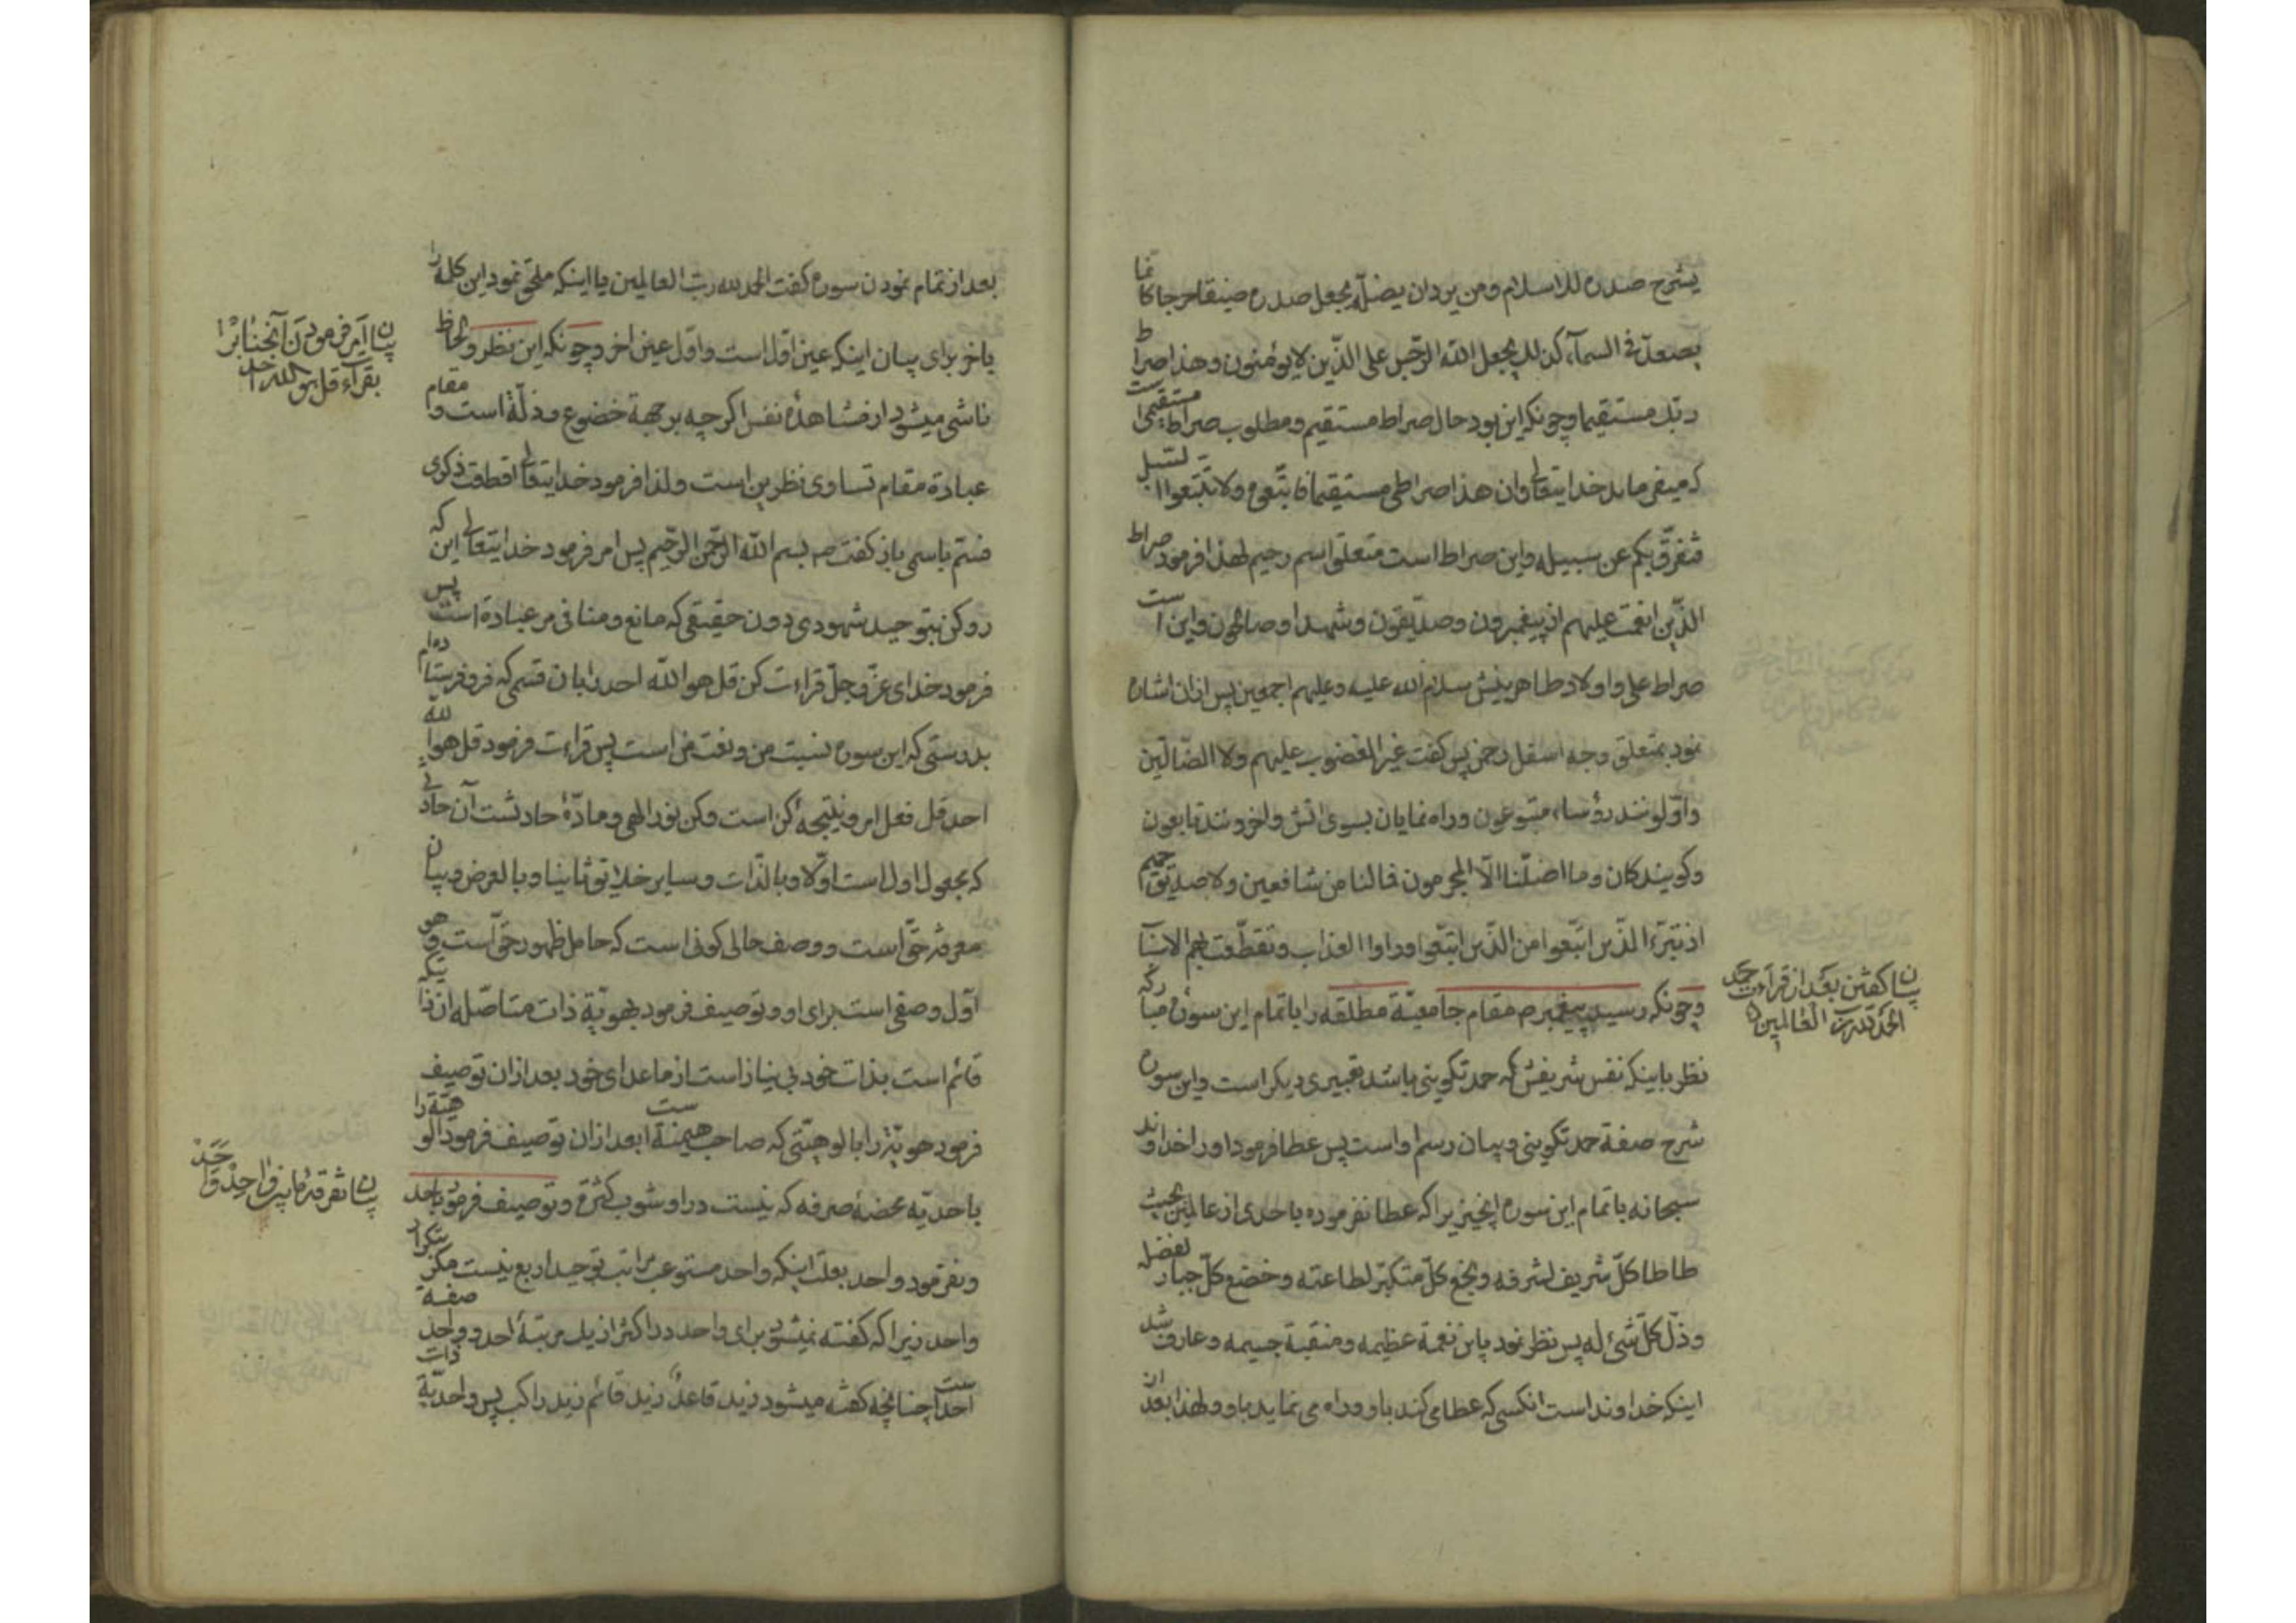 یشرح صدره للاسلام ومن یرد ان یضلّه یجعل صدره ضیقا حرجا کانما
یصعد فی السمآء کذلک یجعل الله الرّجس علی الذّین لا یؤمنون وهذا صراط
ربّک مستقیما وچونکه این بود حال صراط مستقیم ومطلوب صراط مستقیمی است
که میفرماید خدایتعالی وان هذا صراطی مستقیما فاتّبعوه ولا تتّبعوا السّبل
فتفرّق بکم عن سبیله واین صراط است متعلّق اسم رحیم لهذا فرمود صراط
الذّین انعمت علیهم از پیغمبرون وصدّیقون وشهدا وصالحون واین است
صراط علی واولاد طاهرینش سلام الله علیه وعلیهم اجمعین پس ازان اشاره
نمود بمتعلّق وجه اسفل رحمن پس گفت غیر المغضوب علیهم ولا الضّالّین
واوّلونند رؤساء متبوعون وراه نمایان بسوی اتش واخرونند تابعون
وگویندکان وما اضلّنا الّا المجرمون فمالنا من شافعین ولا صدیق حمیم
اذ تبرّء الذّین اتبّعوا من الذّین اتبّعوا وراوا العذاب وتقطّعت بهم الاسباب
وچونکه رسید پیغمبر ص مقام جامعیّة مطلقه را باتمام این سورهٔ مبارکه
نظر باینکه نفس شریفش که حمد تکوینی باشد تعبیری دیگر است واین سوره
شرح صفة حمد تکوینی وبیان رسم او است پس عطا فرمود اورا خداوند
سبحانه باتمام این سوره انچیزیرا که عطا نفرموده باحدی از عالمین بحیث
طاطا کلّ شریف لشرفه وبخع کلّ متکبّر لطاعته وخضع کلّ جبار لفضله
وذلّ کلّ شیء له پس نظر نمود باین نعمة عظیمه ومنقبة جسیمه وعارف شد
اینکه خداوند است انکسی که عطا می کند باو وراه می نماید باو ولهذا بعد از
بیان گفتن بعد از قراءت حمد
الحمد لله ربّ العالمین
بعد از تمام نمودن سوره گفت الحمد لله ربّ العالمین یا اینکه ملحق نمود این کلمه را
باخر برای بیان اینکه عین اوّل است واوّل عین اخر وچونکه این نظر ولحاظ
ناشی میشود از مشاهدهٔ نفس اگرچه بر جهة خضوع وذلّة است ومقام
عبادة مقام تساوی نظرین است ولذا فرمود خدایتعالی قطعت ذکری
فسّم باسمی باز گفت ص بسم الله الرّحمن الرّحیم پس امر فرمود خدایتعالی این که
رو کن بتوحید شهودی دون حقیقی که مانع ومنافی مر عبادة است پس
فرمود خدای عزّ وجلّ قراءت کن قل هو الله احد را بان قسمی که فرو فرستاده ام
بدرستی که این سوره نسبت من ونعت من است پس قراءت فرمود قل هو الله
احد قل فعل امر ونتیجهٔ کن است وکن نور الهی ومادّهٔ حادثست آن حادثی
که مجعول اول است اوّلا وبالذّات وسایر خلایق ثانیا وبالعرض وبیان
معرفة حقّ است ووصف حالی کونی است که حامل ظهور حقّ است وهو
اوّل وصفی است برای او وتوصیف فرمود بهویّة ذات متاصّله ان ذاتیکه
قائم است بذات خود بی نیاز است از ماعدای خود بعد ازان توصیف
فرمود هویّة را بالوهیّتی که صاحب هیمنة است بعد ازان توصیف فرمود الوهیّة را
باحدیّه محضهٔ صرفه که نیست در او شوب کثرة وتوصیف فرمود باحد
ونفرمود واحد بعلّت اینکه واحد مستوعب مراتب توحید اربع نیست مگر بتکرار
واحد زیرا که گفته نمیشود برای واحد در اکثر از یک مرتبهٔ احد وواحد صفة
احد است چنانچه گفته میشود زید قاعد زید قائم زید راکب پس واحدیّة ذات
بیان امر فرمودن آنجناب را
بقراءة قل هو الله احد
بیان تفرقهٔ مابین واحد واحد